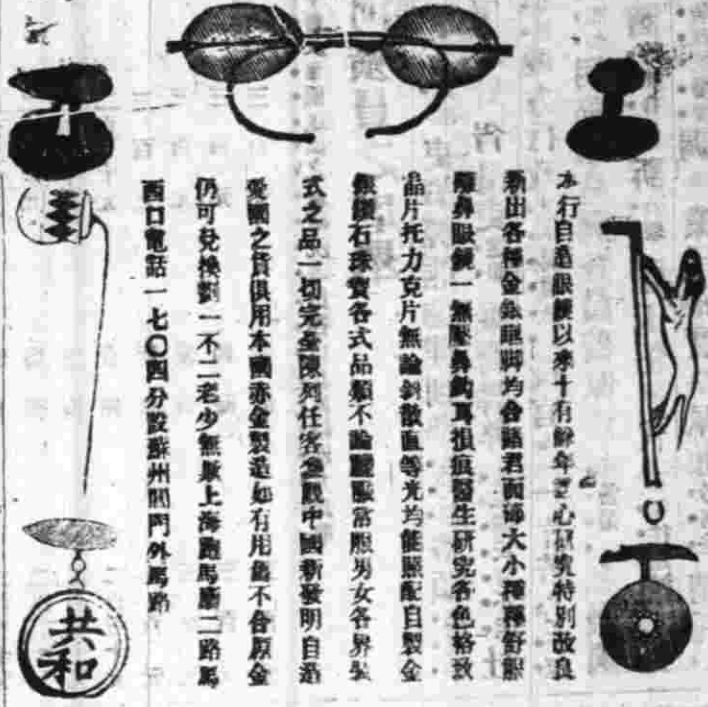 本行自造眼鏡以來十有餘年苦心研究特別改良
新出各種金銀腿脚均合諸君面部大小種種舒服
離鼻眼鏡一無壓鼻鈎耳損痕醫生研究各色格致
晶片托力克片無論斜散直等光均能照配自製金
銀鑽石珠寶各式品類不論 男女各界裝
式之品一切完全陳列任客參觀中國新發明自造
愛國之貨俱用本國赤金製造如有用舊不合原金
仍可兌換劃一不二老少無欺上海跑馬廳二路馬
西口電話一七〇四分設蘇州閶門外馬路
共和